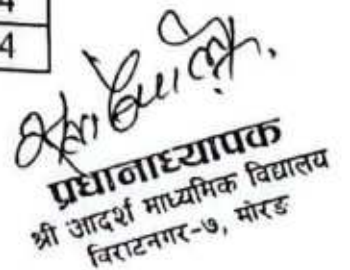 4
4
प्रधानाध्यापक
श्री आदर्श माध्यमिक विद्यालय
विराटनगर-७, मोरङ